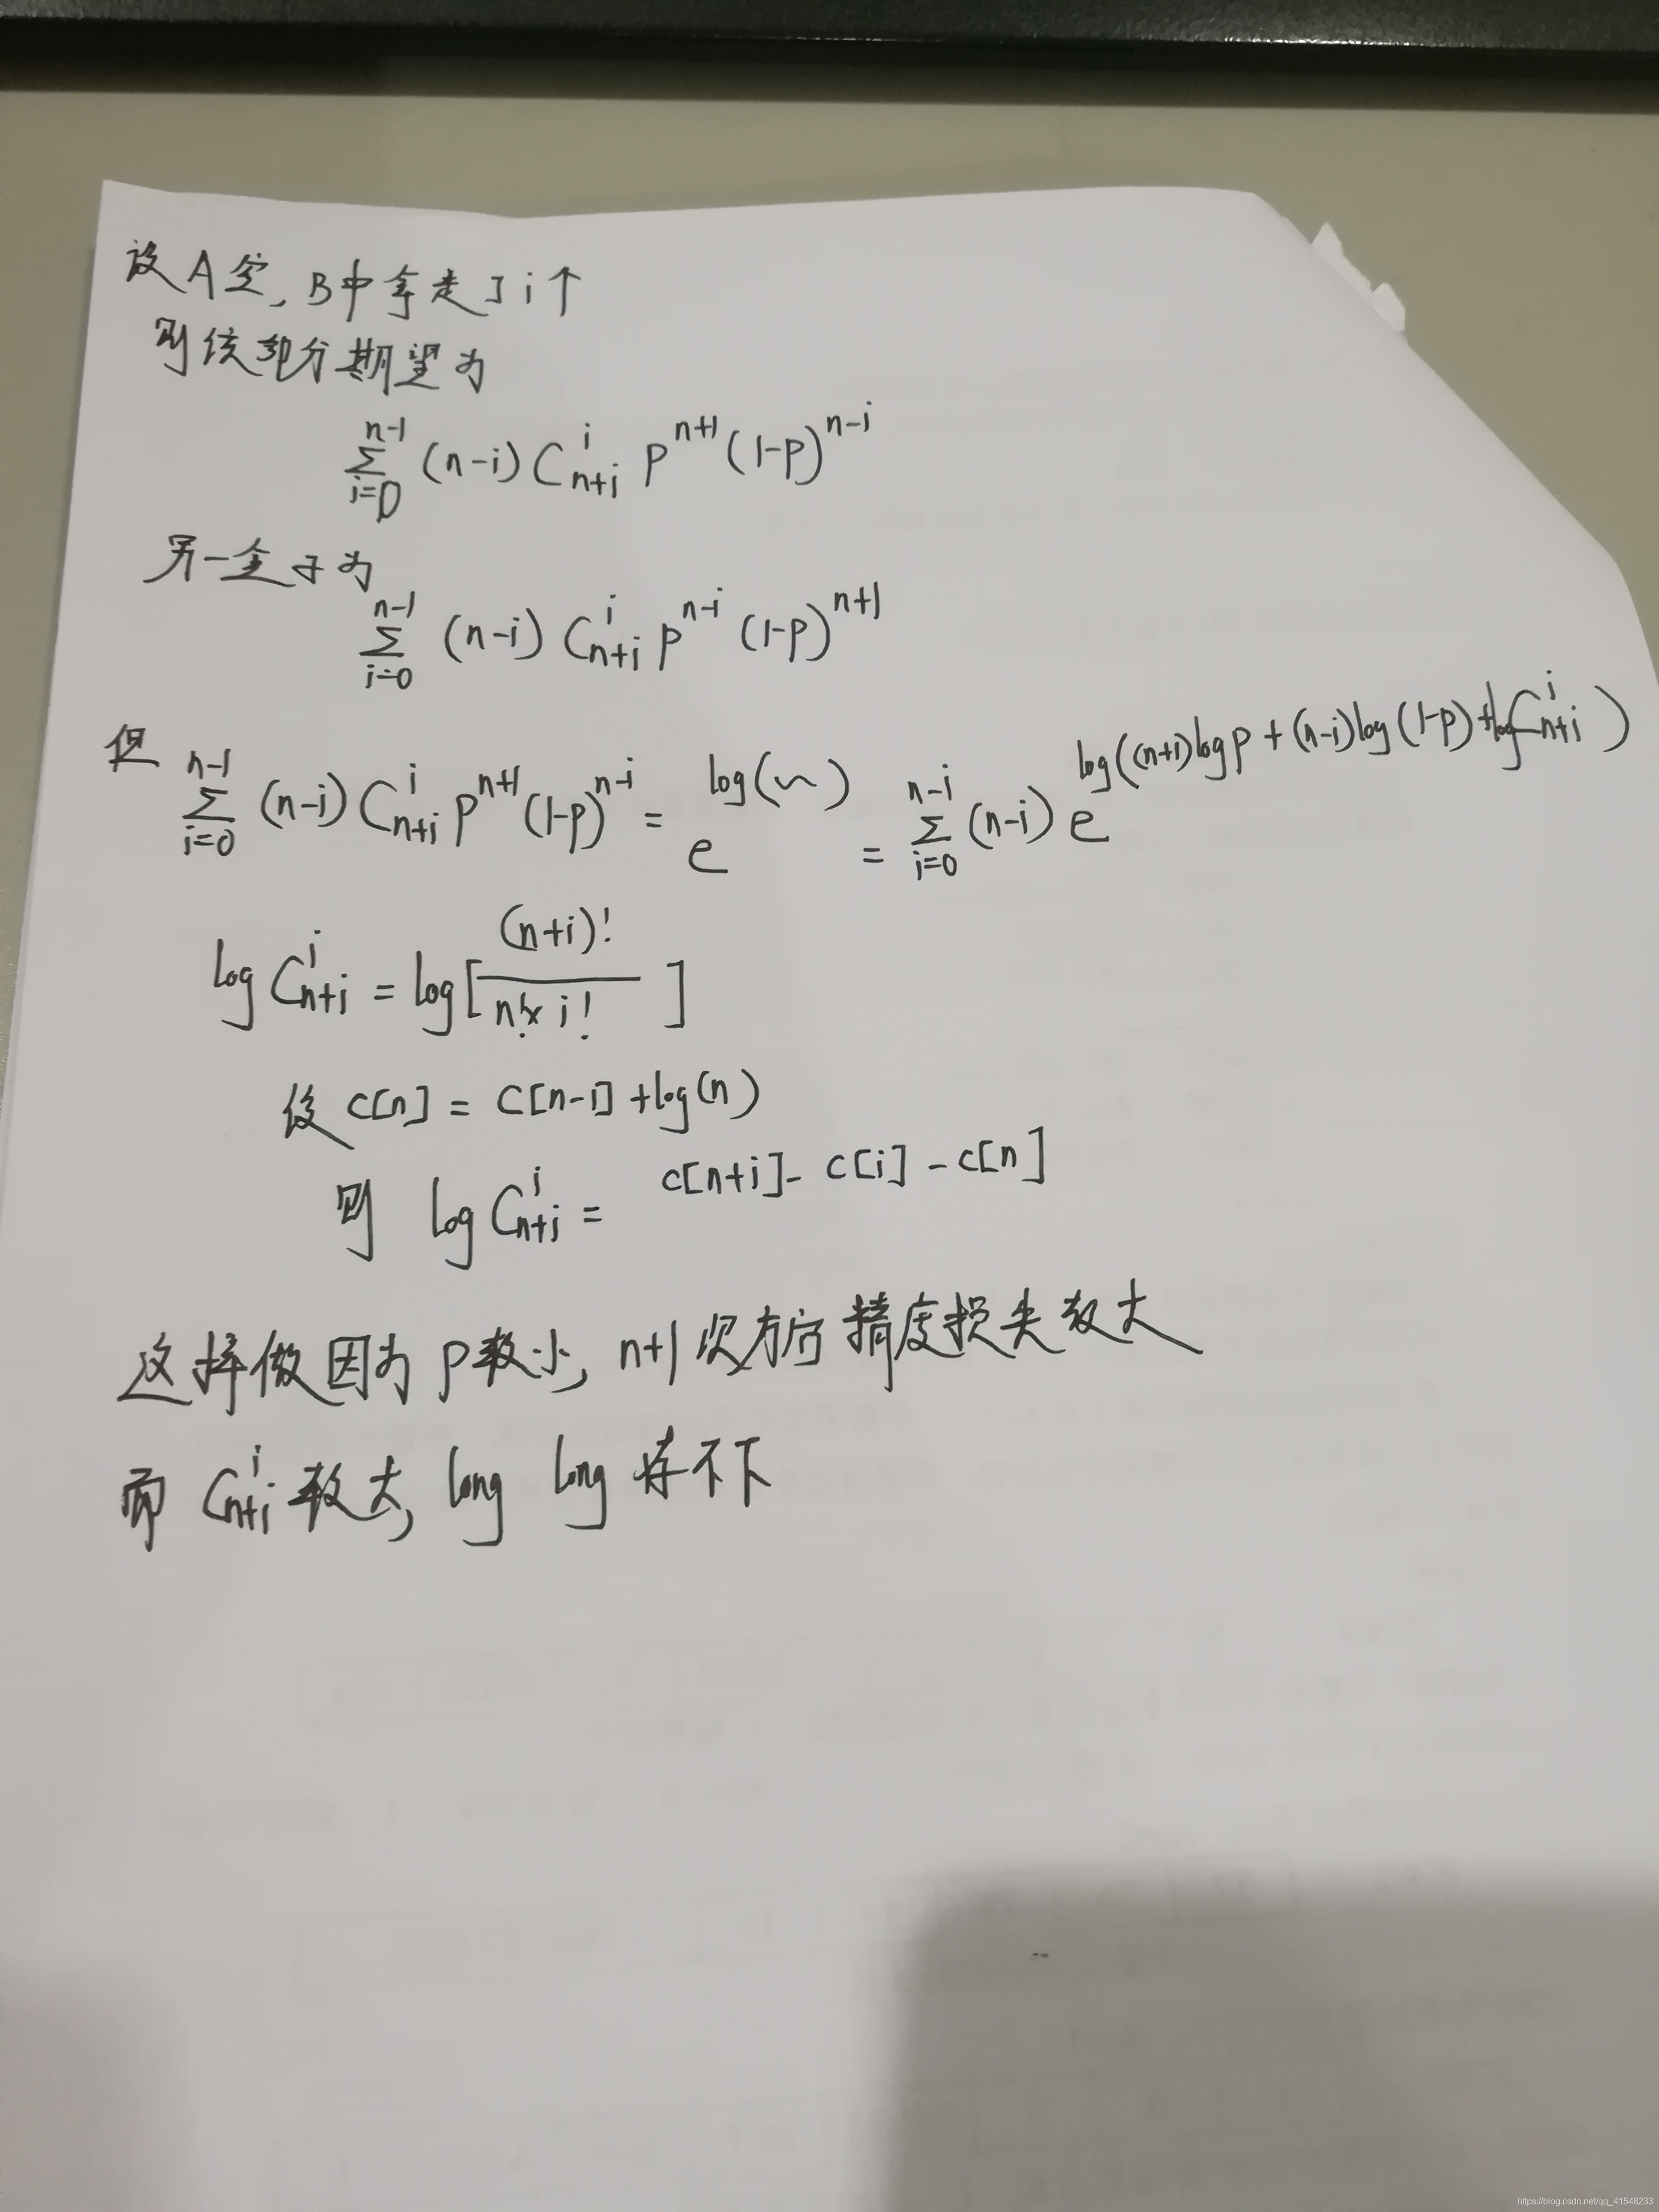 设A空,B中拿走了i个
则该部分期望为
\sum_{i=0}^{n-1} (n-i) C_{n+i}^{i} p^{n+1} (1-p)^{n-i}
另一盒子为
\sum_{i=0}^{n-1} (n-i) C_{n+i}^{i} p^{n-i} (1-p)^{n+1}
但 \sum_{i=0}^{n-1} (n-i) C_{n+i}^{i} p^{n+1} (1-p)^{n-i} = e^{log(~)} = \sum_{i=0}^{n-i} (n-i) e^{log((n+1)log p + (n-i)log(1-p) + log C_{n+i}^{i})}
log C_{n+i}^{i} = log[\frac{(n+i)!}{n! × i!}]
设 c[n] = c[n-1] + log(n)
则 log C_{n+i}^{i} = c[n+i] - c[i] - c[n]
这样做因为 p较小, n+1次方后 精度损失较大
而 C_{n+i}^{i} 较大, long long 存不下
https://blog.csdn.net/qq_41548233